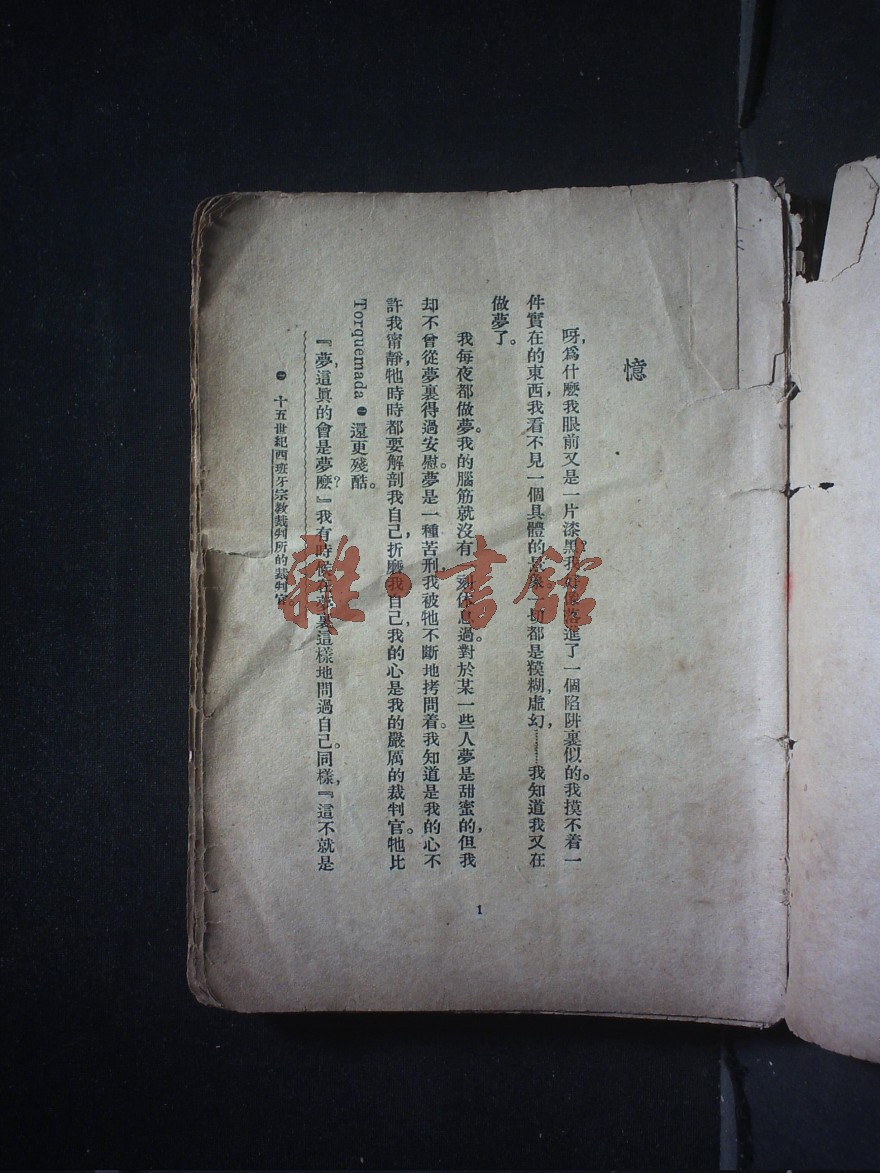 憶
呀,爲什麽我眼前又是一片漆黑?我好像落進了一個陷阱裏似的。我摸不着一
件實在的東西,我看不見一個具體的景象,一切都是糢糊,虛幻………我知道我又在
做夢了。
我每夜都做夢。我的腦筋就沒有一刻休息過。對於某一些人夢是甜蜜的,但我
却不曾從夢裏得過安慰。夢是一種苦刑,我被牠不斷地拷問着。我知道是我的心不
許我甯靜,牠時時都要解剖我自己,折磨我自己。我的心是我的嚴厲的裁判官。牠比
Torquemada ㊀ 還更殘酷。
『夢,這眞的會是夢麽?』我有時候在夢裏這樣地問過自己。同樣,『這不就是
㊀ 十五世紀西班牙宗教裁判所的裁判官。
1
雜·書館